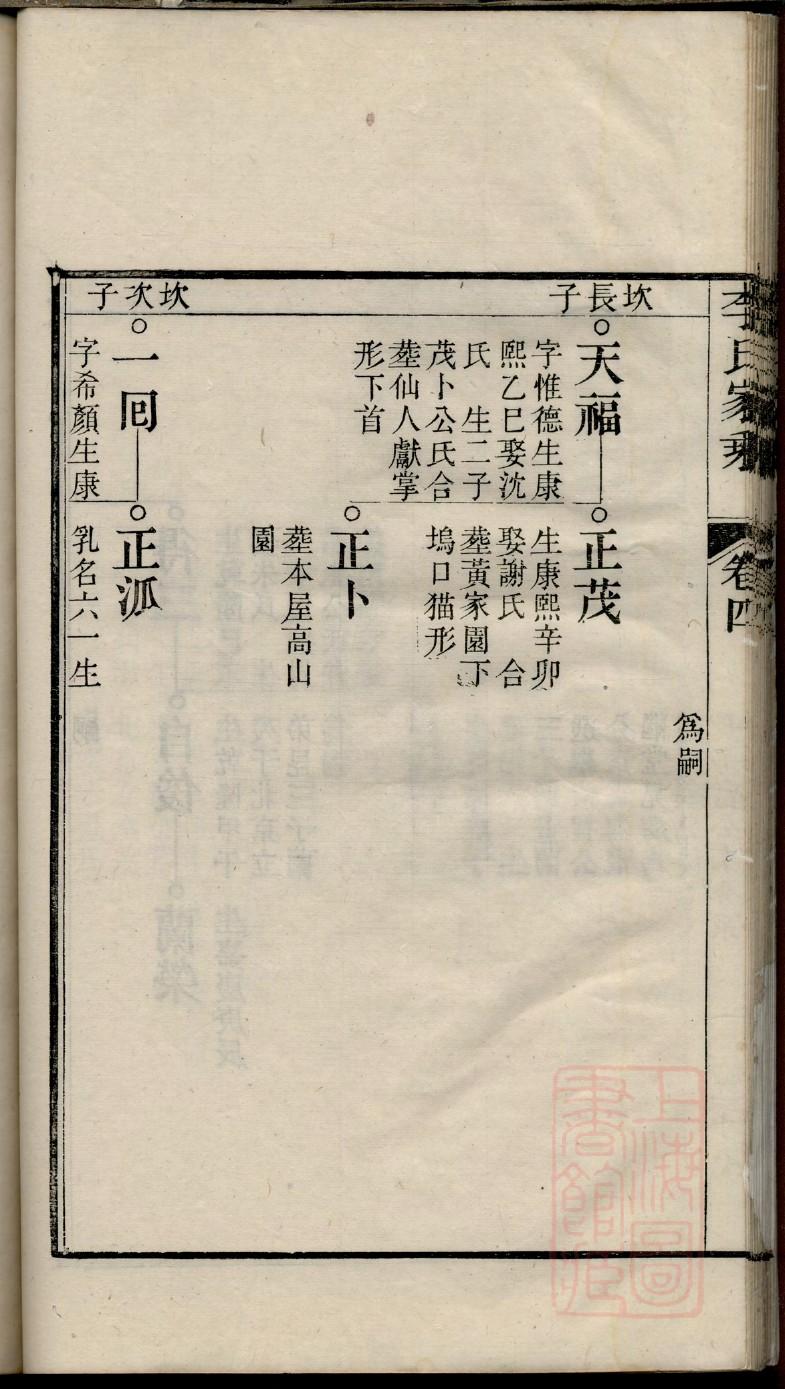 李氏家乘
卷四
爲嗣
坎長子
天福
字惟德生康
熙乙巳娶沈
氏 生二子
茂卜公氏合
塟仙人獻掌
形下首
正茂
生康熙辛卯
娶謝氏 合
塟黃家園下
塢口猫形
正卜
塟本屋高山
園
坎次子
一囘
字希顏生康
正泒
乳名六一生
上海圖
書館藏